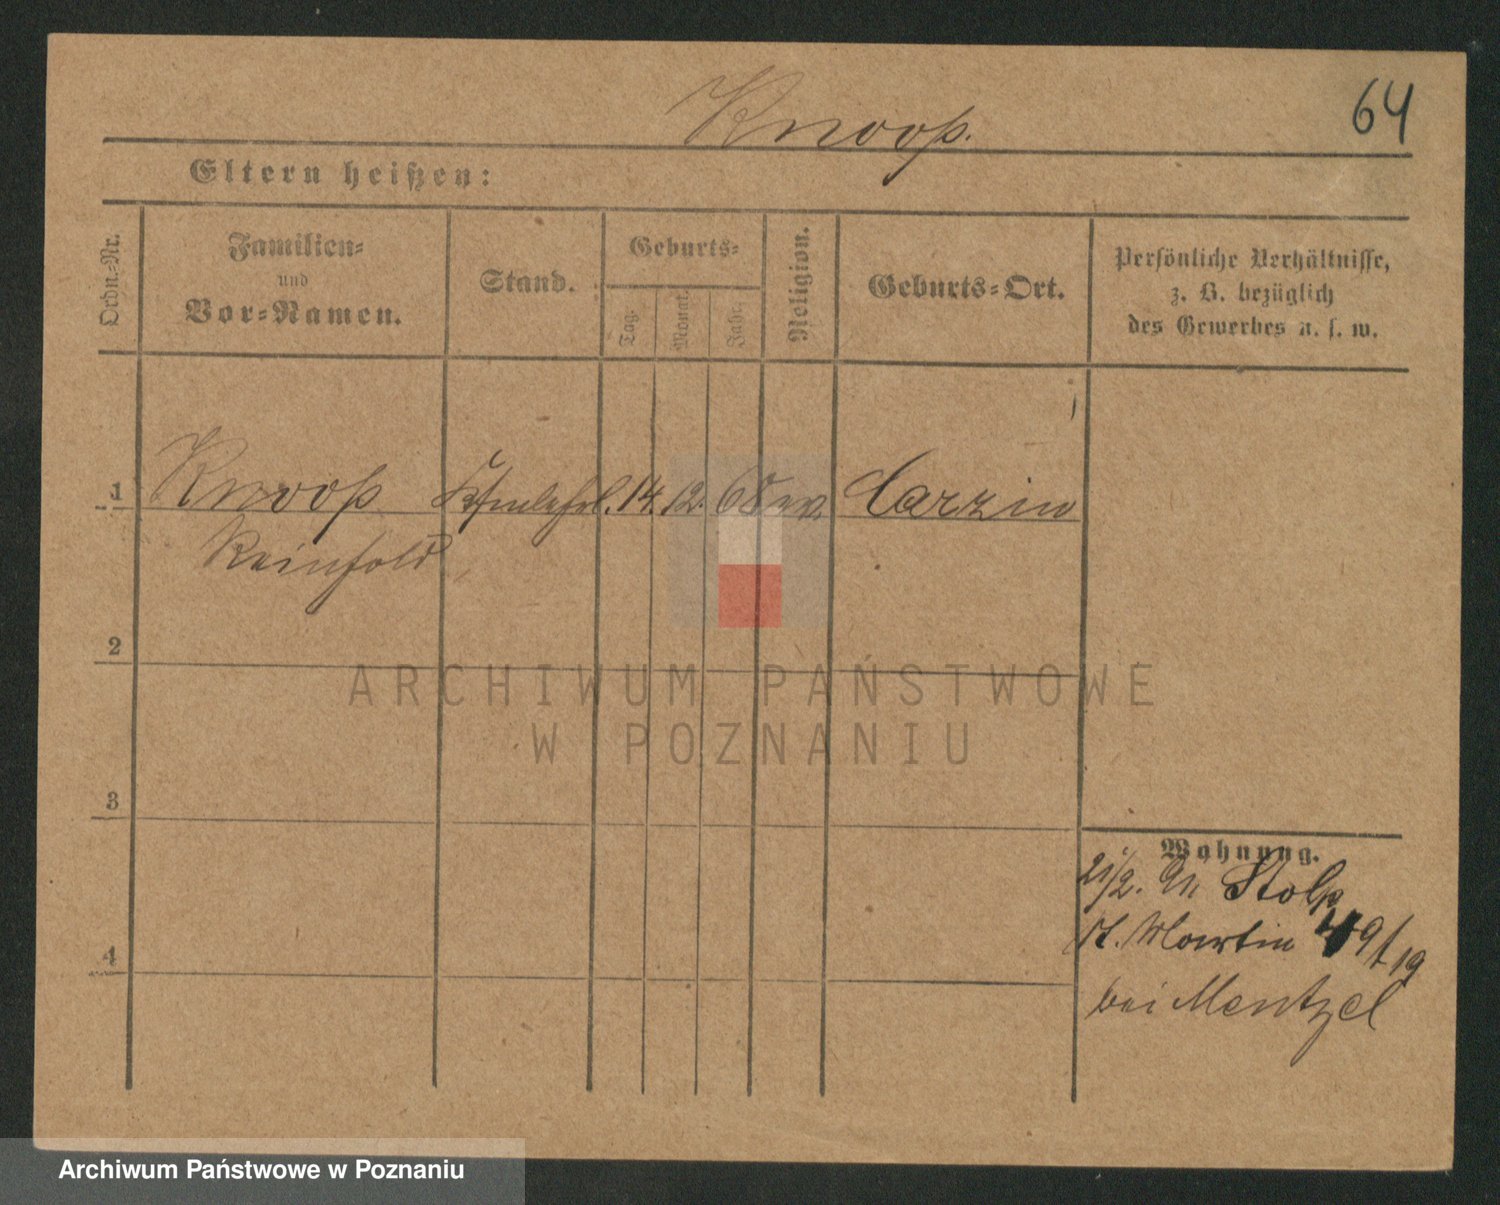 Knoop.
64
Eltern heißen:
Ordn.=Nr.
Familien=
und
Vor=Namen.
Stand.
Geburts=
Tag.
Monat.
Jahr.
Religion.
Geburts=Ort.
Persönliche Verhältnisse,
z. B. bezüglich
des Gewerbes u. s. w.
1 Knoop 14. 12. 68 ev. Carzin
Reinhold
2
3
4
Wohnung.
21/2. Stolp
St. Martin
bei Mentzel
ARCHIWUM PAŃSTWOWE
W POZNANIU
Archiwum Państwowe w Poznaniu